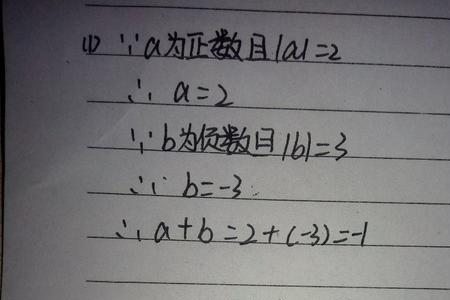 (1) ∵a为正数且|a|=2
∴ a=2
∵b为负数且|b|=3
∴ b=-3
∴a+b=2+(-3)=-1